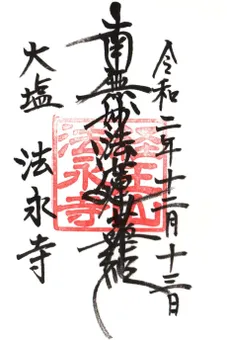 令和二年十二月十三日
南無妙法蓮華経
経王山
法永寺
大塩 法永寺